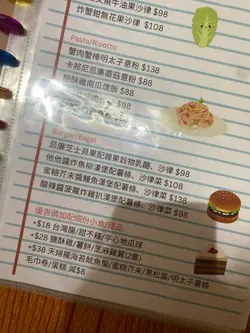 文魚牛油果沙律 $98
炸蟹鉗無花果沙律 $108
Pasta/Risotto
蟹肉蟹棒明太子意粉 $138
卡邦尼忌廉蘑菇意粉 $88
鵝肝南瓜燴飯 $88
Burger/Bagel
忌廉芝士貝果配雜果穀物乳酪、沙律 $98
他他醬炸魚柳漢堡配薯條、沙律 $98
蜜糖芥末醬鰻魚漢堡配薯條、沙律菜 $108
酸辣醬菠蘿炸雞扒漢堡配薯條、沙律菜 $98
優惠價加配細份小食/甜品:
+$18 台灣腸/甜不辣/平心地瓜球
+$28 鹽酥雞/薯餅/芝麻雞翼(2隻)
+$38 天婦羅海苔魷魚鬚/蜜糖芥末/黑松露/明太子薯條
毛巾卷/蛋糕 減$8